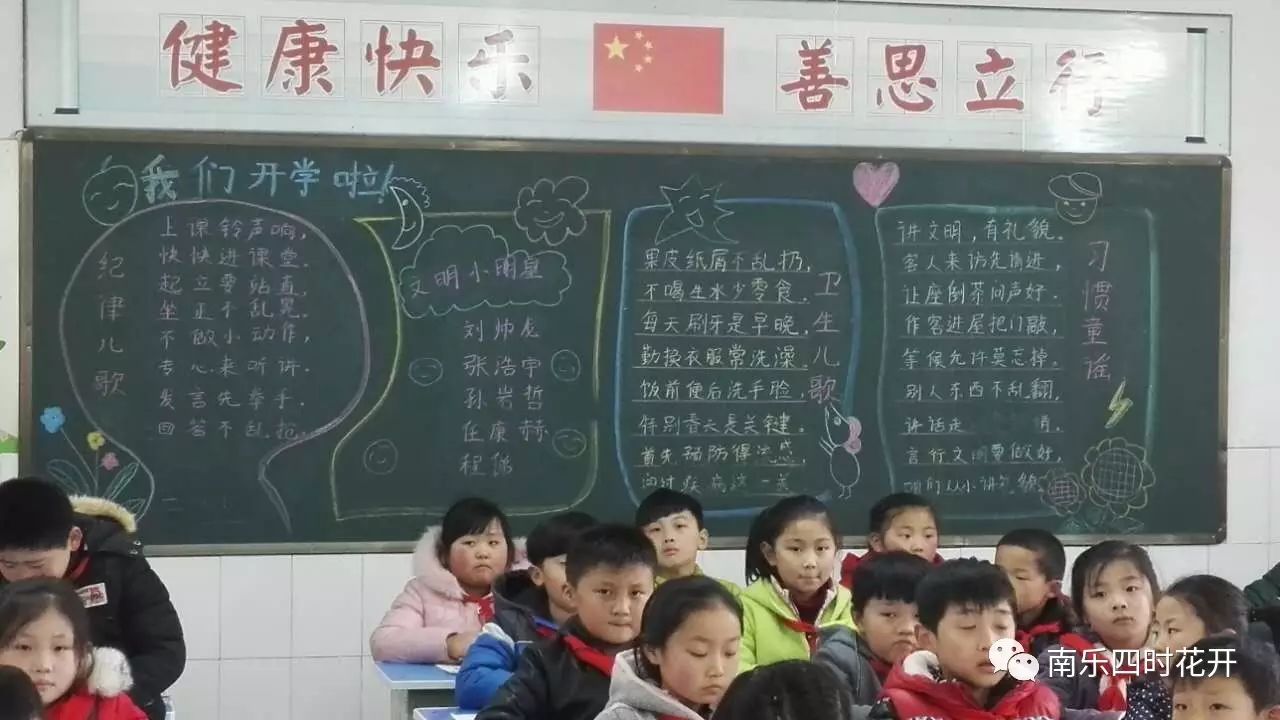 健康快乐 善思立行
我们开学啦!
纪律儿歌
上课铃声响,
快快进课堂.
起立要站直,
坐正不乱晃.
不做小动作,
专心来听讲.
发言先举手.
回答不乱抢.
文明小明星
刘帅龙
张浩宇
孙岩哲
任康赫
程
卫生儿歌
果皮纸屑不乱扔,
不喝生水少零食.
每天刷牙是早晚,
勤换衣服常洗澡.
饭前便后洗手脸,
特别春天是关键.
首先预防得流感,
习惯童谣
讲文明,有礼貌.
客人来访先请进,
让座倒茶问声好.
作客进屋把门敲,
等候允许莫忘掉.
别人东西不乱翻,
讲话走 情.
言行文明要做好,
咱们从小讲礼貌
南乐四时花开